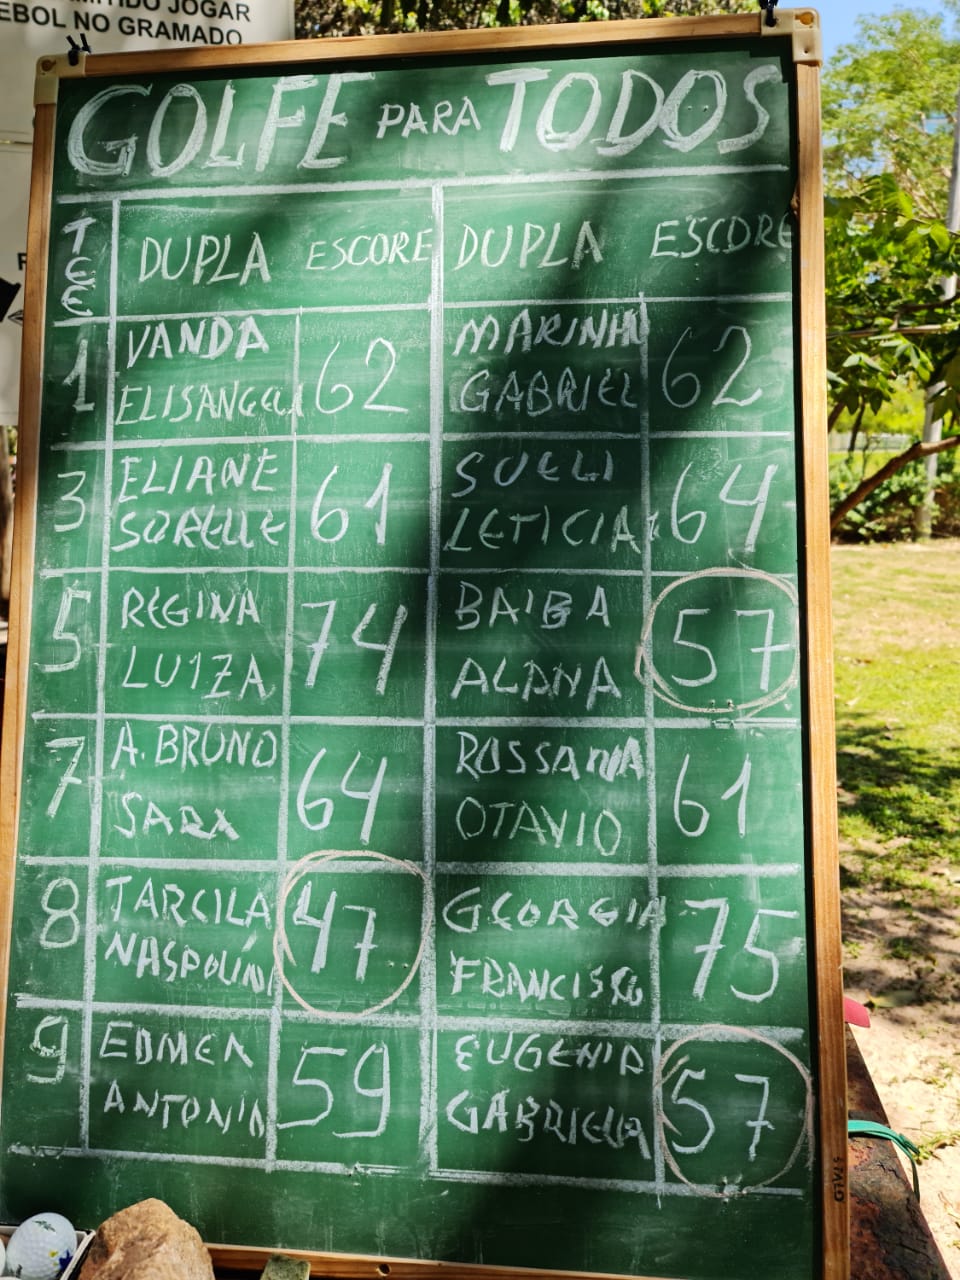 JOGAR
EBOL NO GRAMADO
GOLFE PARA TODOS
TEE DUPLA ESCORE DUPLA ESCORE
1 VANDA ELISANGELA 62 MARINHO GABRIEL 62
3 ELIANE SORELLE 61 SUELI LETICIA 64
5 REGINA LUIZA 74 BAIBA ALANA 57
7 A. BRUNO SARA 64 ROSSANA OTAVIO 61
8 TARCILA NASPOLINI 47 GEORGIA FRANCISCO 75
9 EDMEA ANTONIA 59 EUGENIA GABRIELLA 57